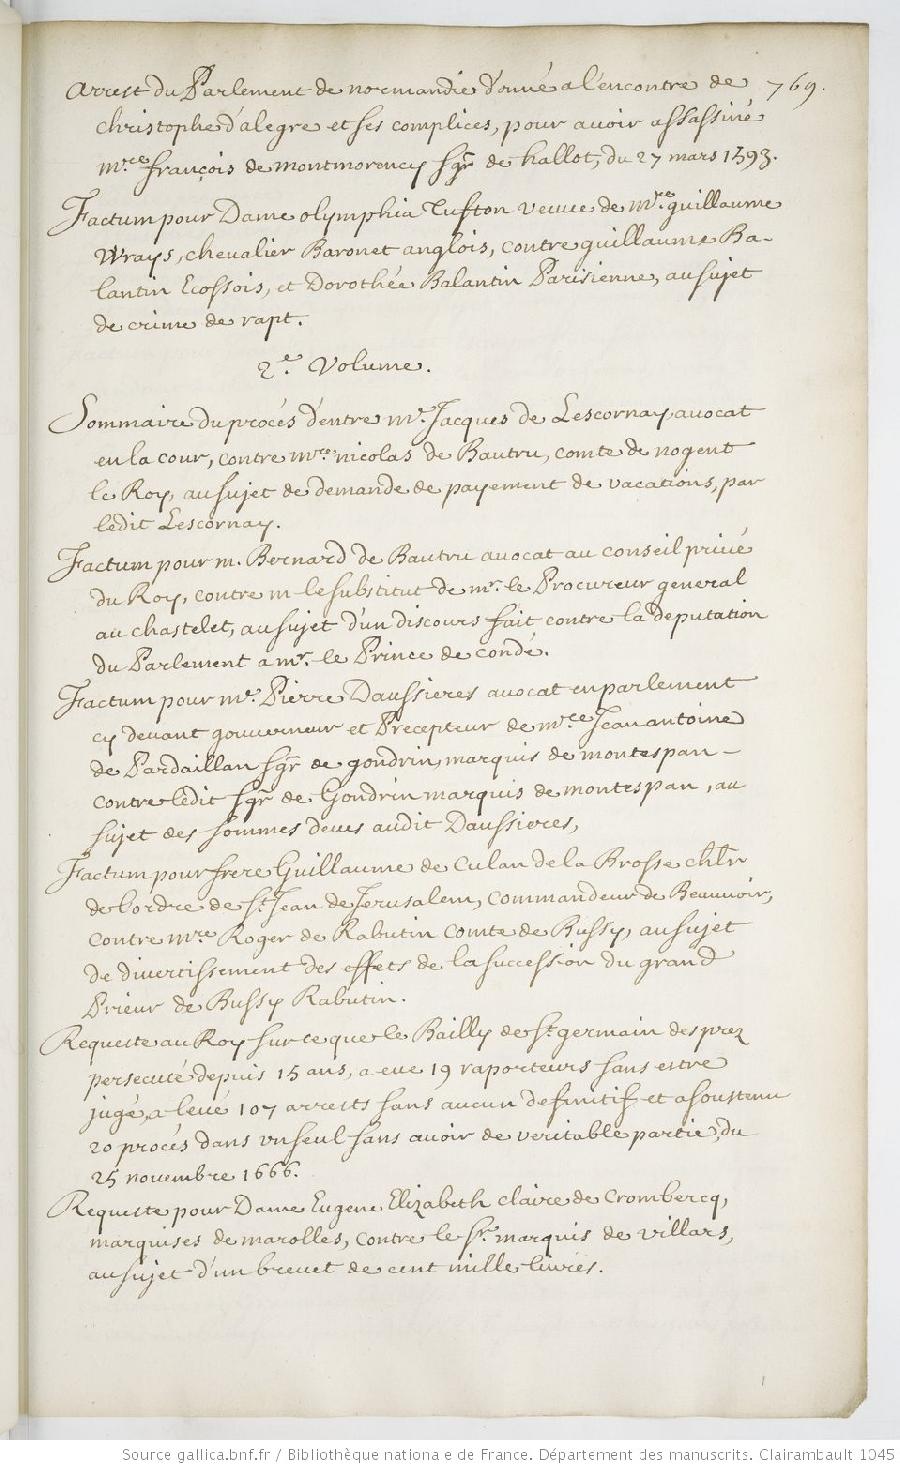 Arrest du Parlement de normandie donné a l'encontre de 769.
christophe d'alegre et ses complices, pour auoir assassiné
mre françois de montmorency sgr de hallot, du 27 mars 1593.
Factum pour Dame olymphia Tufton veuue de mre guillaume
Wrays, cheualier Baronet anglois, contre guillaume Ba-
lantin Ecossois, et Dorothée Balantin Parisienne, au sujet
de crime de rapt.
2e Volume.
Sommaire du procés d'entre me Jacques de Lescornay auocat
en la cour, contre mre nicolas de Bautru, comte de nogent
le Roy, au sujet de demande de payement de vacations, par
ledit Lescornay.
Factum pour m. Bernard de Bautru auocat au conseil priué
du Roy, contre m le substitut de mr. le Procureur general
au chastelet, au sujet d'un discours fait contre la deputation
du Parlement a mr. le Prince de condé.
Factum pour me. Pierre Daussieres auocat en parlement
cy deuant gouuerneur et Precepteur de mre Jean antoine
de Pardaillan sgr de gondrin, marquis de montespan -
contre ledit sgr de Gondrin marquis de montespan, au
sujet des sommes deues audit Daussieres,
Factum pour frere Guillaume de Culan de la Brosse chlr
de l'ordre de St. Jean de Jerusalem, commandeur de Beauuoir,
contre mre Roger de Rabutin comte de Bussy, au sujet
de diuertissement des effets de la succession du grand
Prieur de Bussy Rabutin.
Requeste au Roy sur ce que le Bailly de St. germain des prez
persecuté depuis 15 ans, a eue 19 raporteurs sans estre
jugé, a leué 107 arrests sans aucun definitif et a soustenu
20 procés dans vn seul sans auoir de veritable partie, du
25 nouembre 1666.
Requeste pour Dame Eugene Elizabeth claire de Crombercq,
marquises de marolles, contre le sr. marquis de villars,
au sujet d'un breuet de cent mille liures.
Source gallica.bnf.fr / Bibliothèque nationa e de France. Département des manuscrits. Clairambault 1045